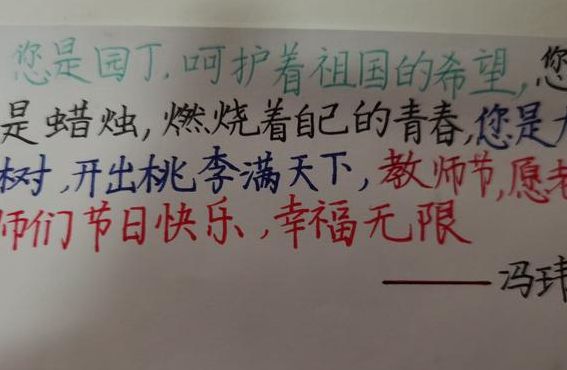 您是园丁,呵护着祖国的希望,您
是蜡烛,燃烧着自己的青春,您是大
树,开出桃李满天下,教师节,愿老
师们节日快乐,幸福无限
——冯玮